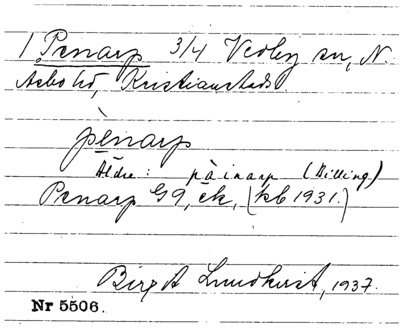 1 Penarp 3/4 Vedby sn, N.
Åsbo hd, Kristianstads
pènarp
Äldre: pàinarp (Billing)
Penarp G 9, ck, (kb 1931.)
Birg A Lundkvist, 1937.
Nr 5506.